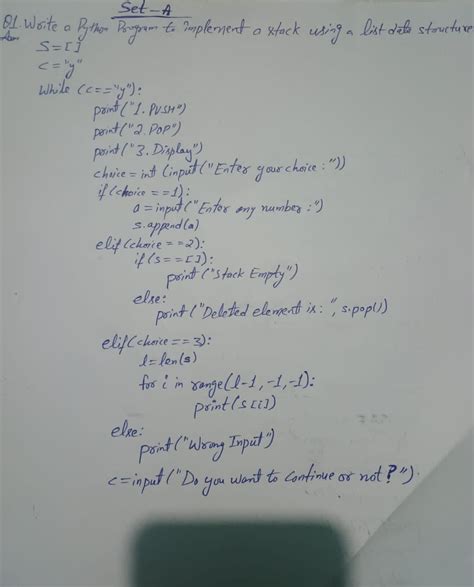 Set-A
Q1. Write a Python Program to implement a stack using a list data structure
Ans
S=[]
c="y"
While (c=="y"):
print("1. PUSH")
print("2. POP")
print("3. Display")
choice=int(input("Enter your choice:"))
if(choice==1):
a=input("Enter any number:")
s.append(a)
elif(choice==2):
if(s==[]):
print("Stack Empty")
else:
print("Deleted element is:", s.pop())
elif(choice==3):
l=len(s)
for i in range(l-1,-1,-1):
print(s[i])
else:
print("Wrong Input")
c=input("Do you want to Continue or not?")